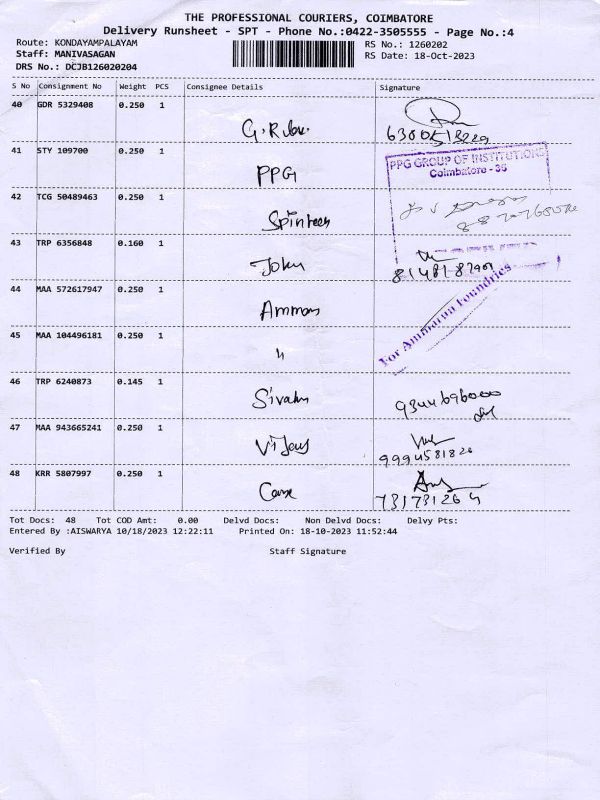 THE PROFESSIONAL COURIERS, COIMBATORE
Delivery Runsheet - SPT - Phone No.:0422-3505555 - Page No.:4
Route: KONDAYAMPALAYAM RS No.: 1260202
Staff: MANIVASAGAN RS Date: 18-Oct-2023
DRS No.: DCJB126020204
S No Consignment No Weight PCS Consignee Details Signature
40 GDR 5329408 0.250 1
41 STY 109700 0.250 1 PPG
PPG GROUP OF INSTITUTIONS
Coimbatore - 35
42 TCG 50489463 0.250 1
43 TRP 6356848 0.160 1 John
44 MAA 572617947 0.250 1 Amman
For Ammarun Foundries
45 MAA 104496181 0.250 1 "
46 TRP 6240873 0.145 1
9344696000
47 MAA 943665241 0.250 1 Vijay
48 KRR 5807997 0.250 1
Tot Docs: 48 Tot COD Amt: 0.00 Delvd Docs: Non Delvd Docs: Delvy Pts:
Entered By :AISWARYA 10/18/2023 12:22:11 Printed On: 18-10-2023 11:52:44
Verified By Staff Signature